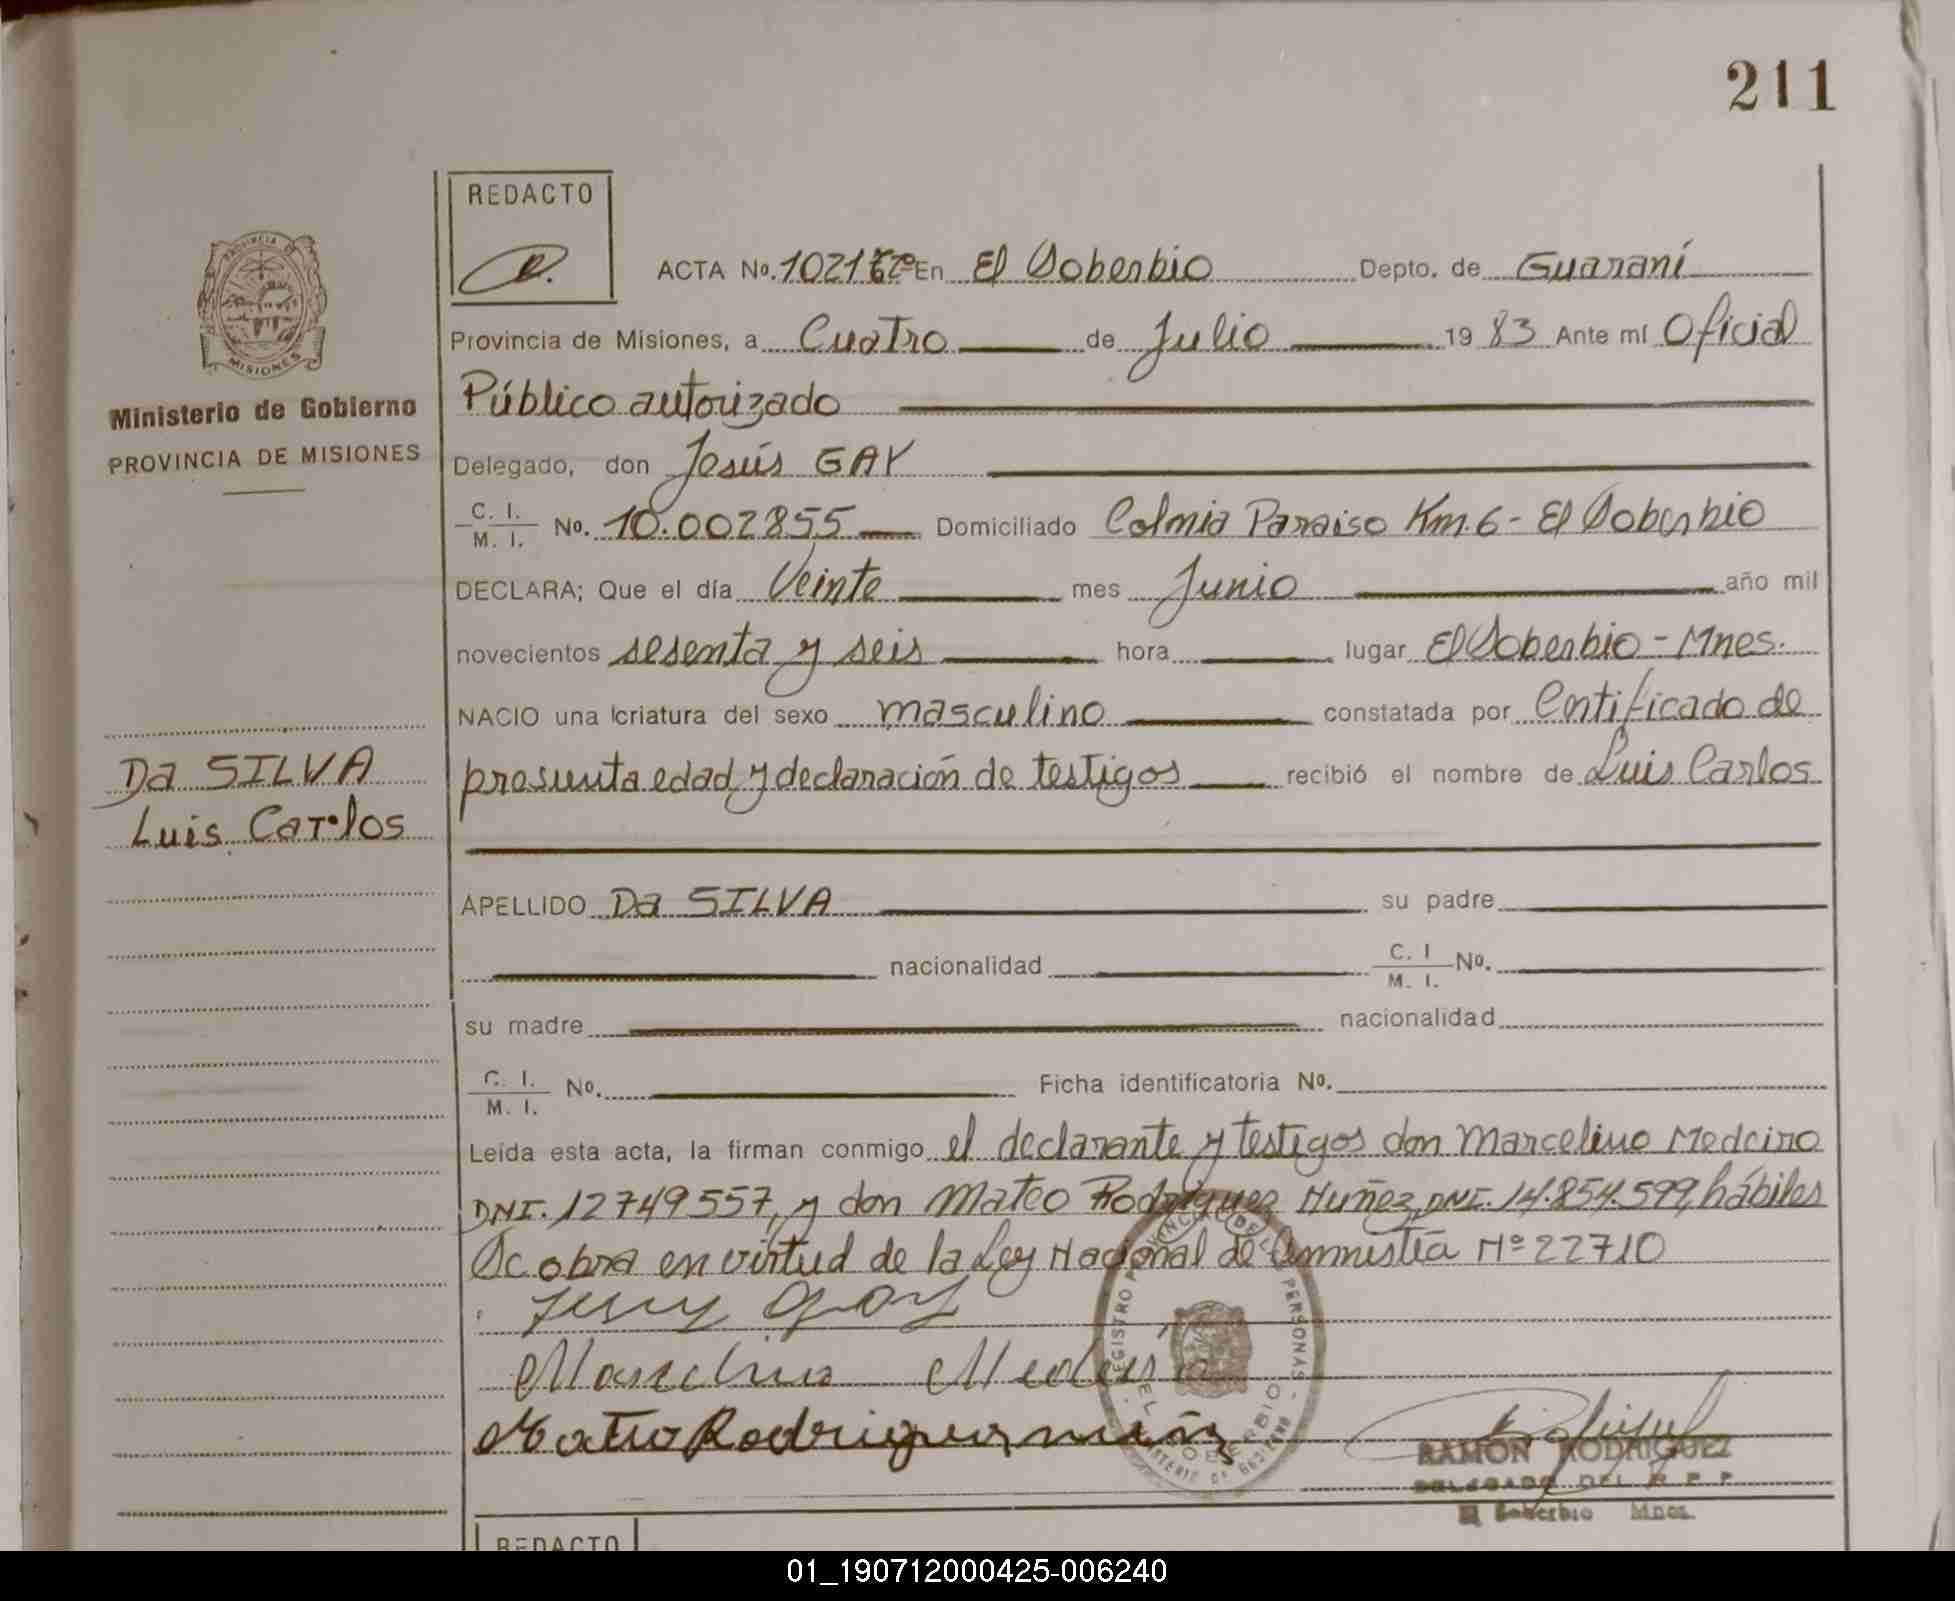 211
REDACTO
ACTA No. 1021 En El Soberbio Depto. de Guaraní
Provincia de Misiones, a Cuatro de Julio 19 83 Ante mí Oficial
Público autorizado
Ministerio de Gobierno
PROVINCIA DE MISIONES
Delegado, don Jesús GAY
C. I.
M. I. No. 10.002855 Domiciliado Colonia Paraiso Km.6 - El Soberbio
DECLARA; Que el día Veinte mes Junio año mil
novecientos sesenta y seis hora lugar El Soberbio - Mnes.
NACIO una criatura del sexo masculino constatada por Certificado de
Da SILVA
Luis Carlos
presunta edad y declaración de testigos recibió el nombre de Luis Carlos
APELLIDO Da SILVA su padre
nacionalidad C. I
M. I. No.
su madre nacionalidad
C. I.
M. I. No. Ficha identificatoria No.
Leída esta acta, la firman conmigo el declarante y testigos don Marcelino Medeiro
DNI. 12749557, y don Mateo Rodriguez Nuñez, DNI. 14.854.599, hábiles
Se obra en virtud de la Ley Nacional de Amnistía Nº 22710
Mateo Rodriguez
RAMON RODRIGUEZ
DELEGADO DEL R P P
El Soberbio Mnes.
REDACTO
01_190712000425-006240